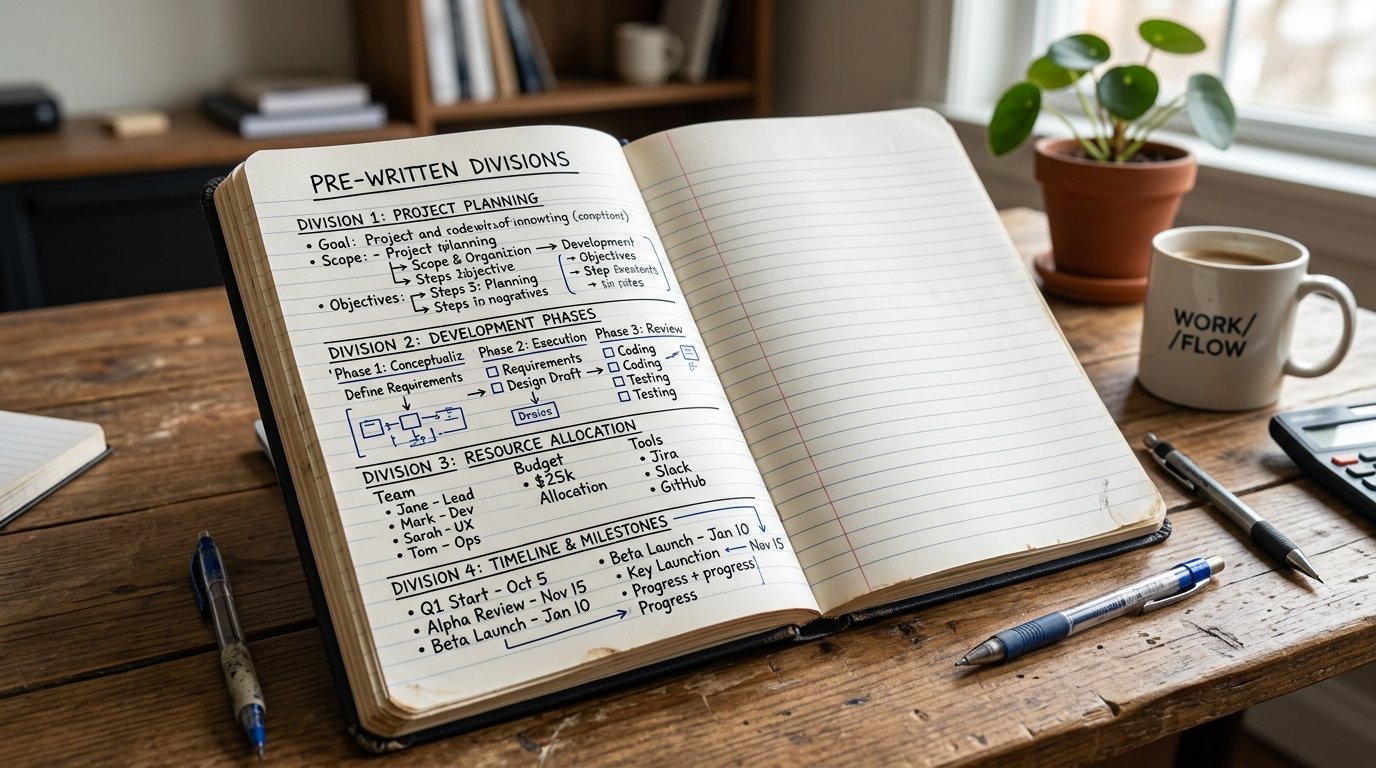 PRE-WRITTEN DIVISIONS
DIVISION 1: PROJECT PLANNING
• Goal: Project and (conptiont)
• Scope: - Project
Scope & Organizion
Steps
• Objectives: Steps 3: Planning
Steps in nogratives
Development
Objectives
Step
DIVISION 2: DEVELOPMENT PHASES
Phase 1: Conceptualiz
Define Requirements
Phase 2: Execution
Requirements
Design Draft
Phase 3: Review
Coding
Coding
Testing
Testing
DIVISION 3: RESOURCE ALLOCATION
Team
• Jane - Lead
• Mark - Dev
• Sarah - UX
• Tom - Ops
Budget
• $25k
Allocation
Tools
• Jira
• Slack
• GitHub
DIVISION 4: TIMELINE & MILESTONES
• Q1 Start - Oct 5
• Alpha Review - Nov 15
• Beta Launch - Jan 10
• Beta Launch - Jan 10
• Key Launction ← Nov 15
• Progress + progress
Progress
WORK/
/FLOW